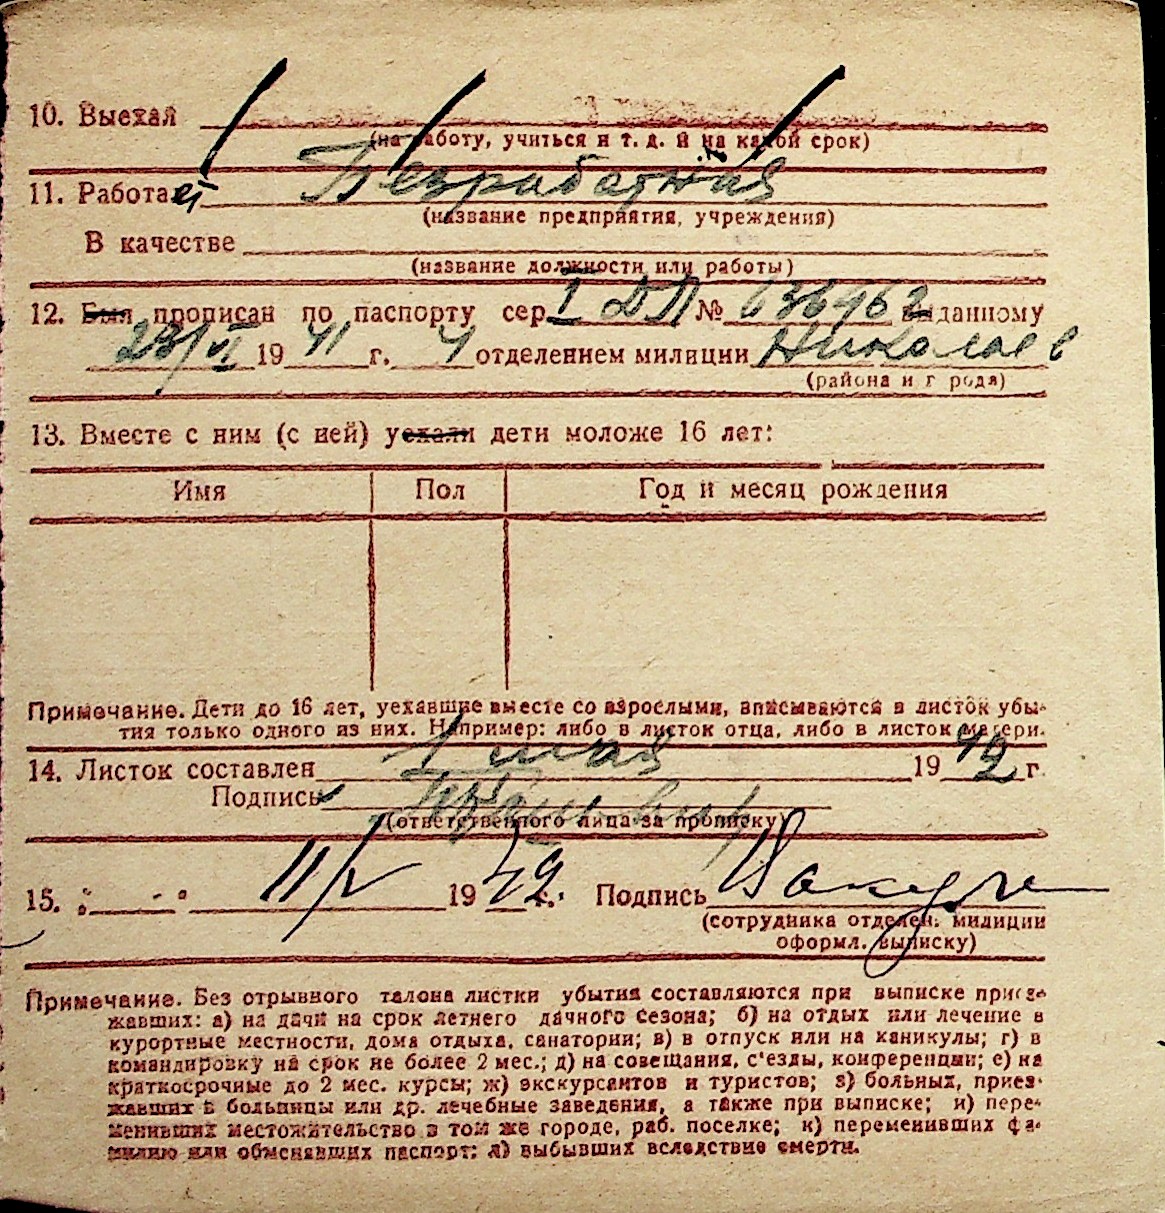 10. Выехал
(на работу, учиться и т. д. и на какой срок)
11. Работает Безработная
(название предприятия, учреждения)
В качестве
(название должности или работы)
12. Был прописан по паспорту сер. I ДЛ № 636962 выданному
23/VI 1941 г. 4 отделением милиции Николаев
(района и г родя)
13. Вместе с ним (с ней) уехали дети моложе 16 лет:
Имя Пол Год и месяц рождения
Примечание. Дети до 16 лет, уехавшие вместе со взрослыми, вписываются в листок убы-
тия только одного из них. Например: либо в листок отца, либо в листок матери.
14. Листок составлен 1 мая 1942 г.
Подпись
(ответственного лица за прописку)
15. 11/V 1942 г. Подпись
(сотрудника отделен. милиции
оформл. выписку)
Примечание. Без отрывного талона листки убытия составляются при выписке приез-
жавших: а) на дачи на срок летнего дачного сезона; б) на отдых или лечение в
курортные местности, дома отдыха, санатории; в) в отпуск или на каникулы; г) в
командировку на срок не более 2 мес.; д) на совещания, с'езды, конференции; е) на
краткосрочные до 2 мес. курсы; ж) экскурсантов и туристов; з) больных, приез-
жавших в больницы или др. лечебные заведения, а также при выписке; и) пере-
менивших местожительство в том же городе, раб. поселке; к) переменивших фа-
милию или обменявших паспорт; л) выбывших вследствие смерти.